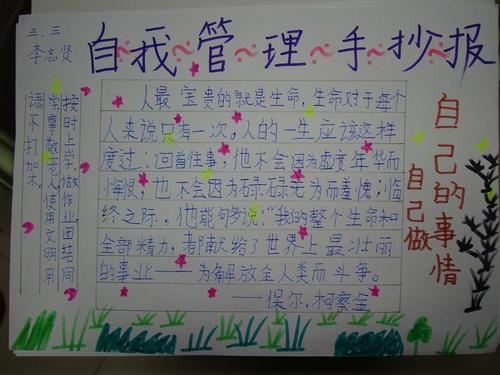 三.三
李志贤
自我管理手抄报
人最宝贵的就是生命，生命对于每个
人来说只有一次。人的一生应该这样
度过：回首往事，他不会因为虚度年华而
悔恨；也不会因为碌碌无为而羞愧；临
终之际，他能够说：“我的整个生命和
全部精力，都献给了世界上最壮丽
的事业——为解放全人类而斗争。
——保尔.柯察金
按时上学做作业团结同
学尊敬老人使用文明用
语不打架
自己的事情
自己做